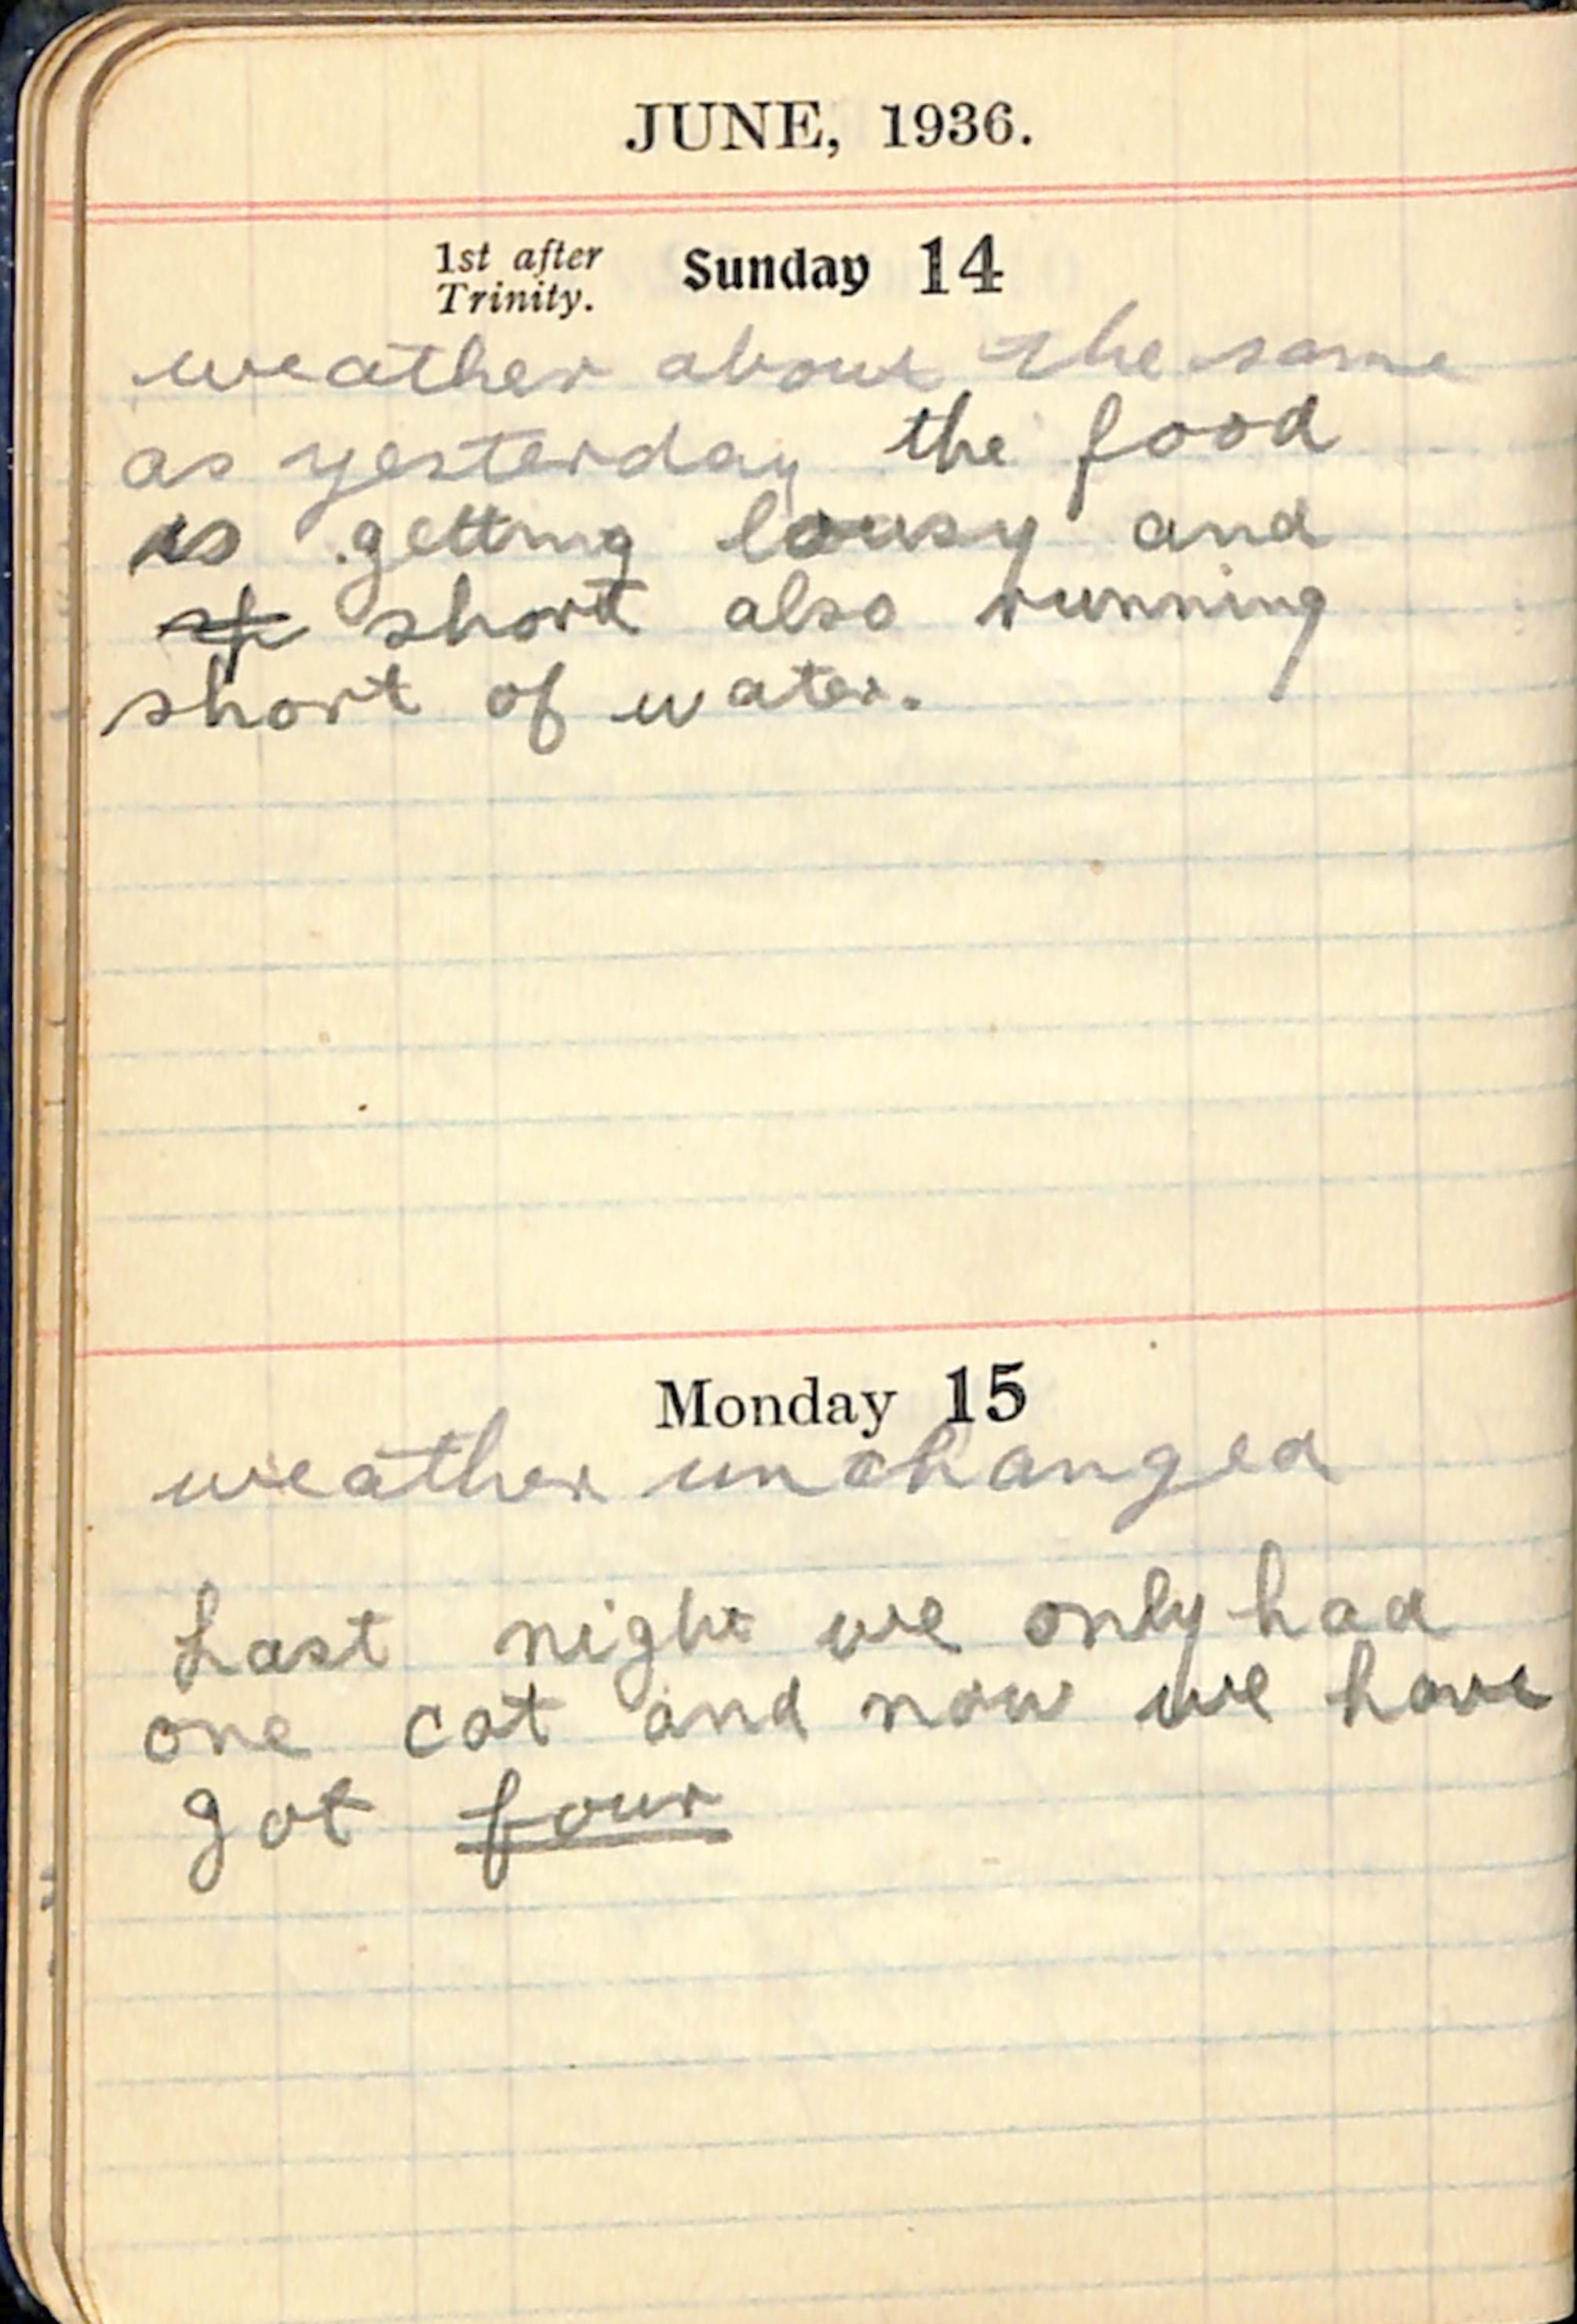 JUNE, 1936.
1st after
Trinity.
Sunday 14
weather about the same
as yesterday the food
is getting lousy and
short also running
short of water.
Monday 15
weather unchanged
Last night we only had
one cat and now we have
got four